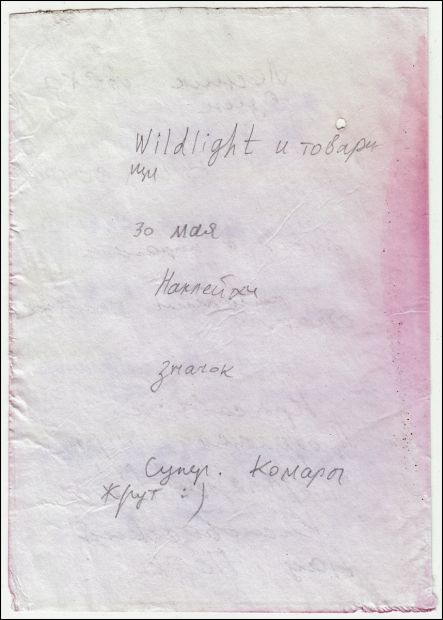 Wildlight и товари
щи
30 мая
Наклейки
значок
Супер. Комары
жрут :)